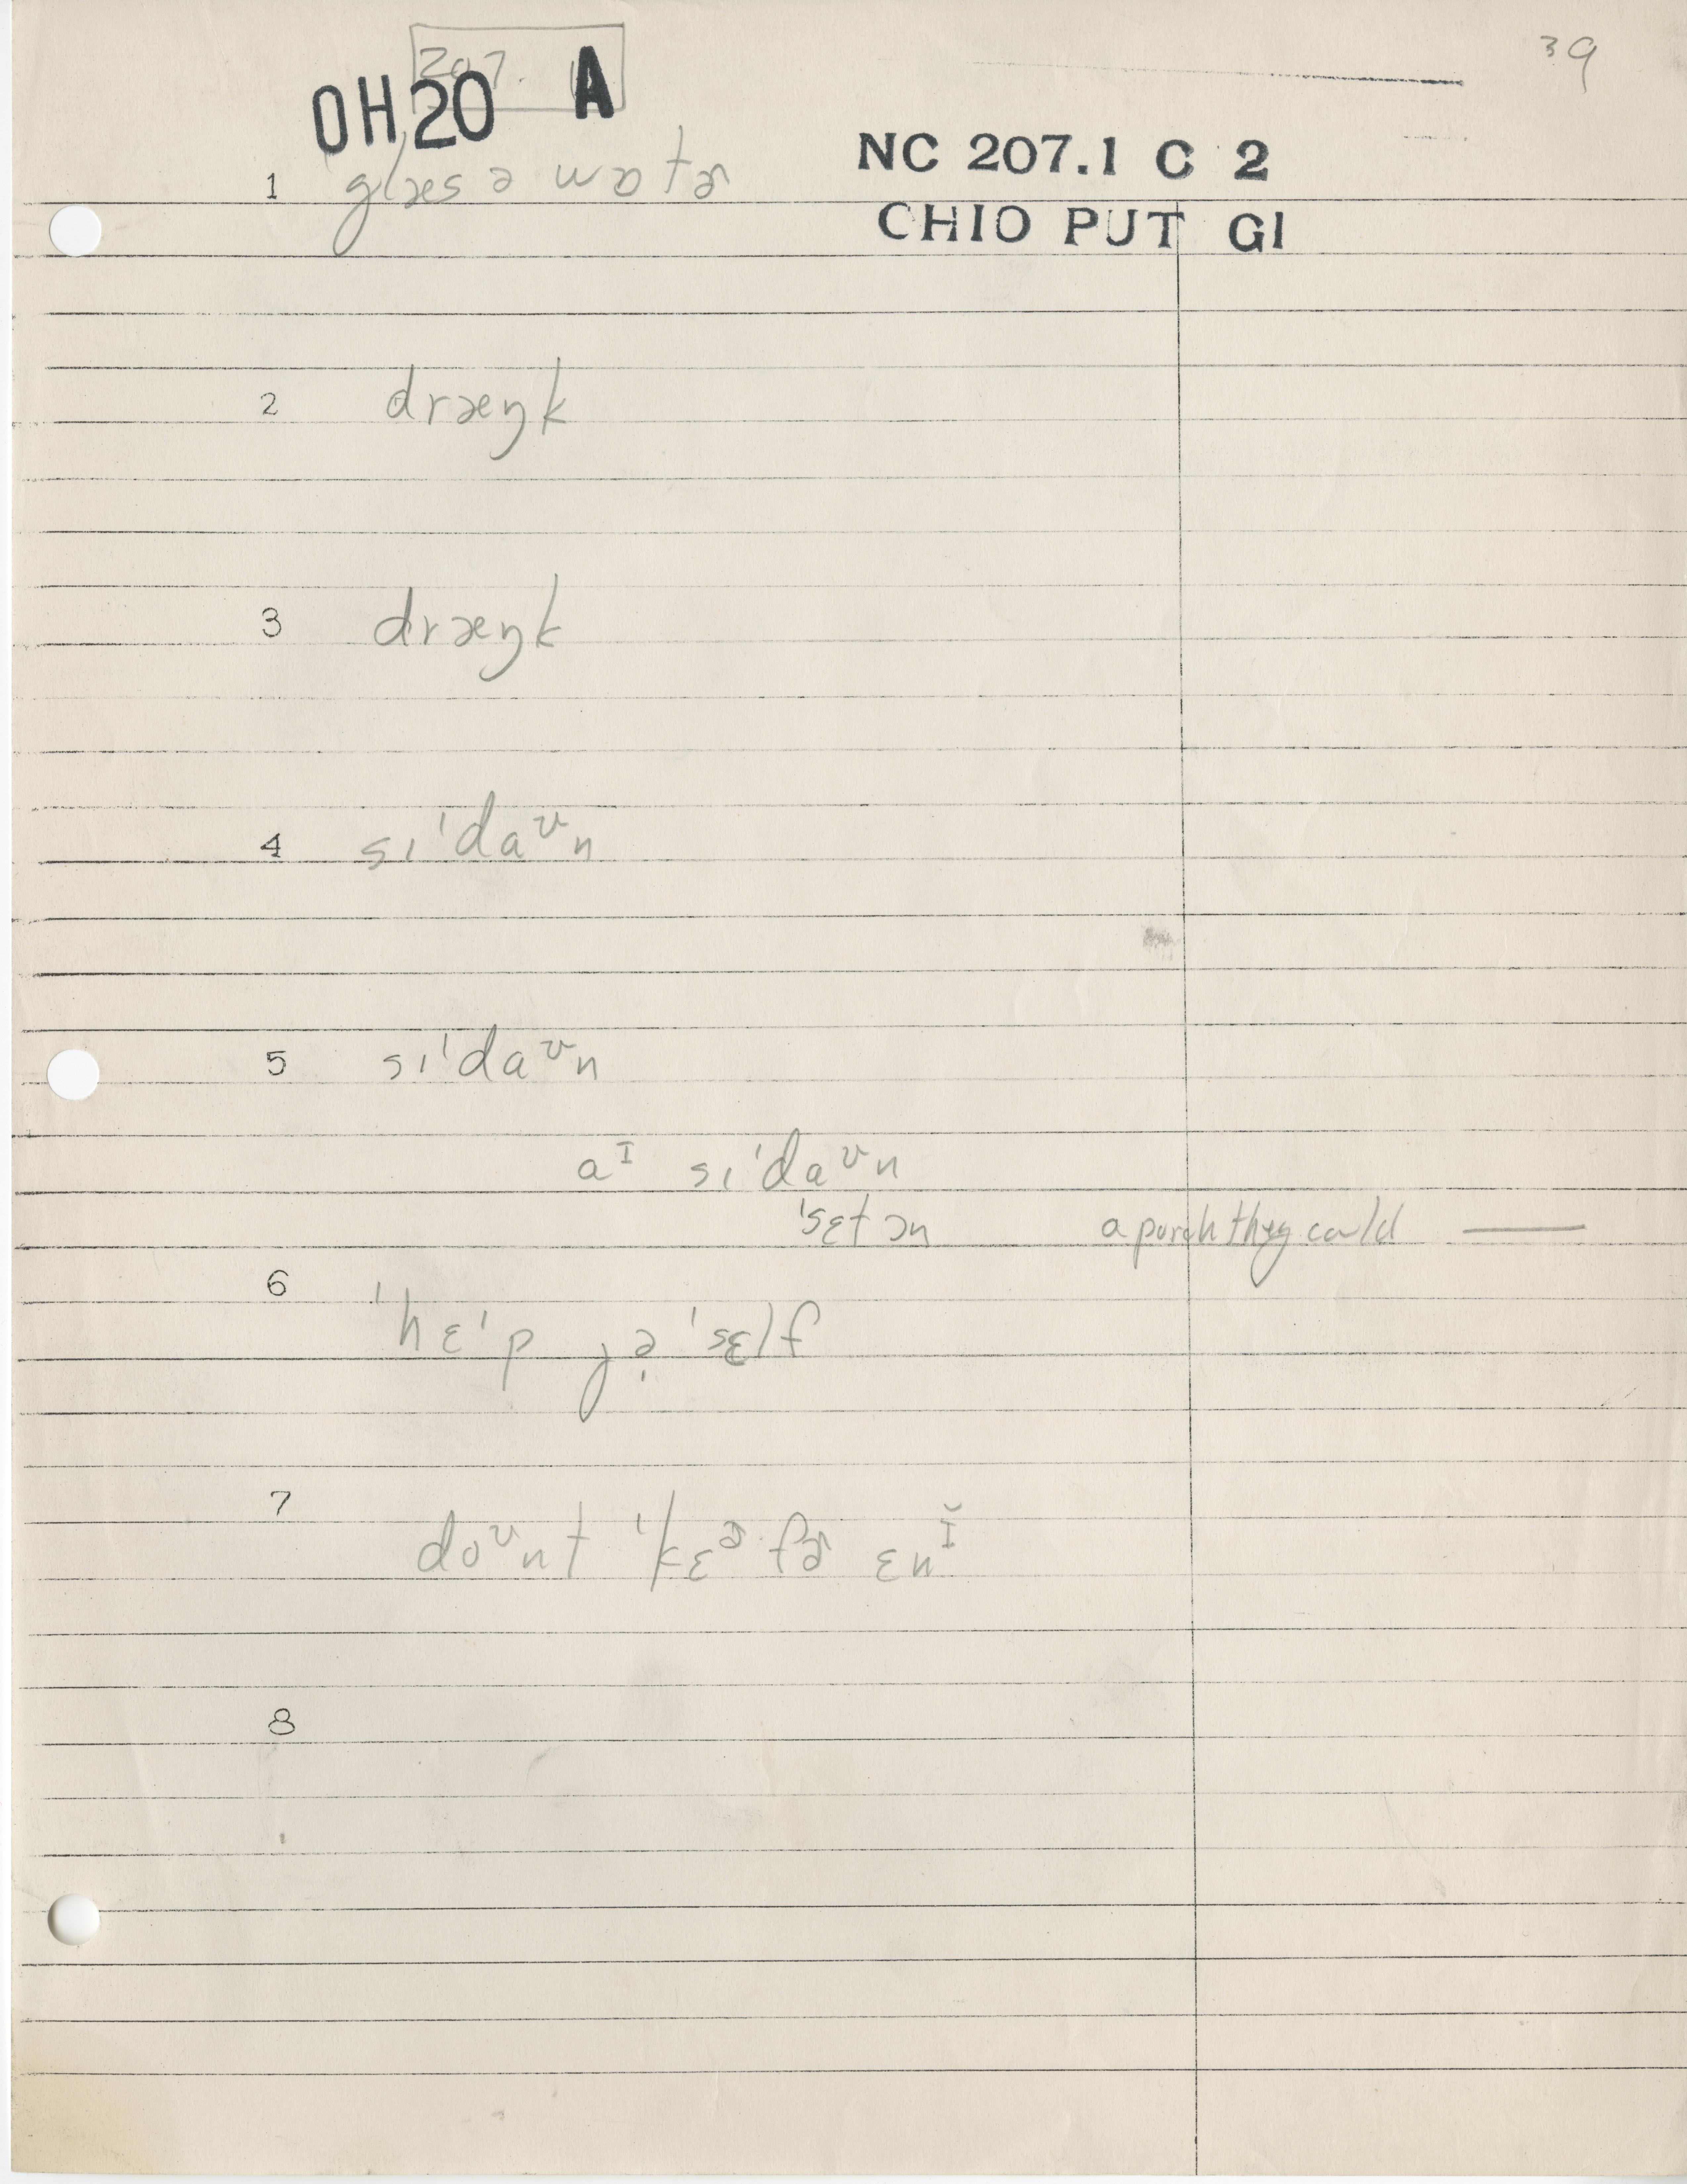 39
207.
OH20 A
NC 207.1 C 2
CHIO PUT GI
1 glæs ə wɒtɚ
2 dræŋk
3 dræŋk
4 sɪˈdaᶷn
5 sɪˈdaᶷn
aᴵ sɪˈdaᶷn
ˈsɛt ɔn a porch they could ——
6 ˈhɛˈp jə̩ ˈsɛlf
7 doᶷnt ˈkɛᵊ˞ fɚ ɛnᴵ̆
8